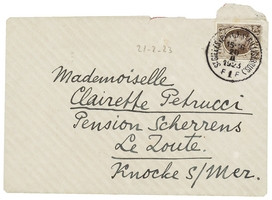 21-2-23
Mademoiselle
Clairette Petrucci
Pension Scherrens
Le Zoute.
Knocke s/Mer.
1923
F F